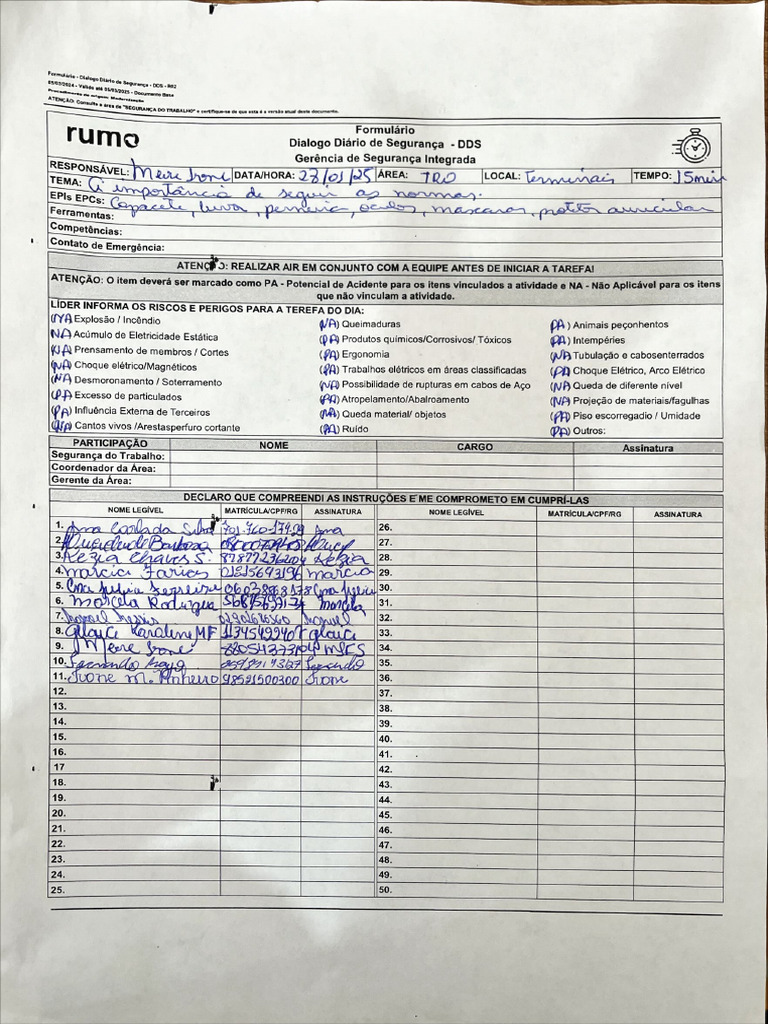 Formulário - Dialogo Diário de Segurança - DDS - R02
05/03/2024 - Válido até 05/03/2025 - Documento Base
Procedimento de origem: Modernização
ATENÇÃO: Consulte a área de "SEGURANÇA DO TRABALHO" e certifique-se de que esta é a versão atual deste documento.
rumo
Formulário
Dialogo Diário de Segurança - DDS
Gerência de Segurança Integrada
RESPONSÁVEL: Meire Ivone DATA/HORA: 27/01/25 ÁREA: TRO LOCAL: Terminais TEMPO: 15min
TEMA: A importância de seguir as normas.
EPIs EPCs: Capacete, luva, perneira, oculos, mascaras, protetor auricular
Ferramentas:
Competências:
Contato de Emergência:
ATENÇÃO: REALIZAR AIR EM CONJUNTO COM A EQUIPE ANTES DE INICIAR A TAREFA!
ATENÇÃO: O item deverá ser marcado como PA - Potencial de Acidente para os itens vinculados a atividade e NA - Não Aplicável para os itens
que não vinculam a atividade.
LÍDER INFORMA OS RISCOS E PERIGOS PARA A TEREFA DO DIA:
(NA) Explosão / Incêndio (NA) Queimaduras (PA) Animais peçonhentos
(NA) Acúmulo de Eletricidade Estática (PA) Produtos químicos/Corrosivos/ Tóxicos (PA) Intempéries
(NA) Prensamento de membros / Cortes (PA) Ergonomia (NA) Tubulação e cabosenterrados
(NA) Choque elétrico/Magnéticos (PA) Trabalhos elétricos em áreas classificadas (PA) Choque Elétrico, Arco Elétrico
(NA) Desmoronamento / Soterramento (NA) Possibilidade de rupturas em cabos de Aço (NA) Queda de diferente nível
(PA) Excesso de particulados (PA) Atropelamento/Abalroamento (NA) Projeção de materiais/fagulhas
(PA) Influência Externa de Terceiros (NA) Queda material/ objetos (PA) Piso escorregadio / Umidade
(NA) Cantos vivos /Arestasperfuro cortante (PA) Ruído (PA) Outros:
PARTICIPAÇÃO NOME CARGO Assinatura
Segurança do Trabalho:
Coordenador da Área:
Gerente da Área:
DECLARO QUE COMPREENDI AS INSTRUÇÕES E ME COMPROMETO EM CUMPRÍ-LAS
NOME LEGÍVEL MATRÍCULA/CPF/RG ASSINATURA NOME LEGÍVEL MATRÍCULA/CPF/RG ASSINATURA
1. Ana Ana 26.
2. Barbosa 27.
3. Kezia Chaves S. Kezia 28.
4. Marcia Farias 01215693196 marcia 29.
5. Ana 30.
6. Marcela Rodrigues Marcela 31.
7. 32.
8. Glauce Karoline MF Glauce 33.
9. Meire Ivone 34.
10. Fernando Fernando 35.
11. Ivone M. Pinheiro 98521500300 Ivone 36.
12. 37.
13. 38.
14. 39.
15. 40.
16. 41.
17 42.
18. 43.
19. 44.
20. 45.
21. 46.
22. 47.
23. 48.
24. 49.
25. 50.